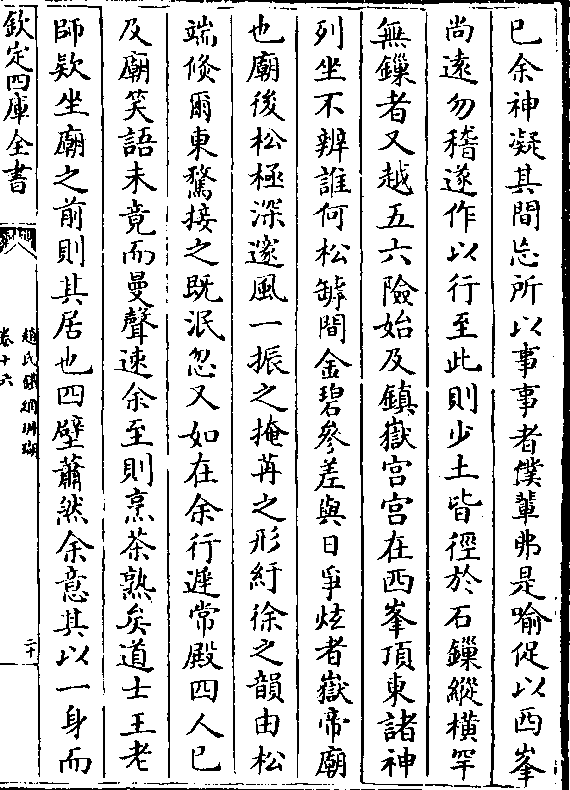 已余神凝其間忘所以事事者僕輩弗是喻促以西峯
尚遠勿稽遂作以行至此則少土皆徑於石鏁縱横罕
無鏁者又越五六險始及鎮嶽宫宫在西峯頂東諸神
列坐不辨誰何松罅間金碧參差與日爭炫者嶽帝廟
也廟後松極深邃風一振之掩苒之形紆徐之韻由松
端倐爾東騖接之既泯忽又如在余行遲常殿四人已
及廟笑語未竟而曼聲速余至則烹茶熟矣道士王老
師欵坐廟之前則其居也四壁蕭然余意其以一身而
欽定四庫全書
趙氏鐵網珊瑚
卷十六
二十